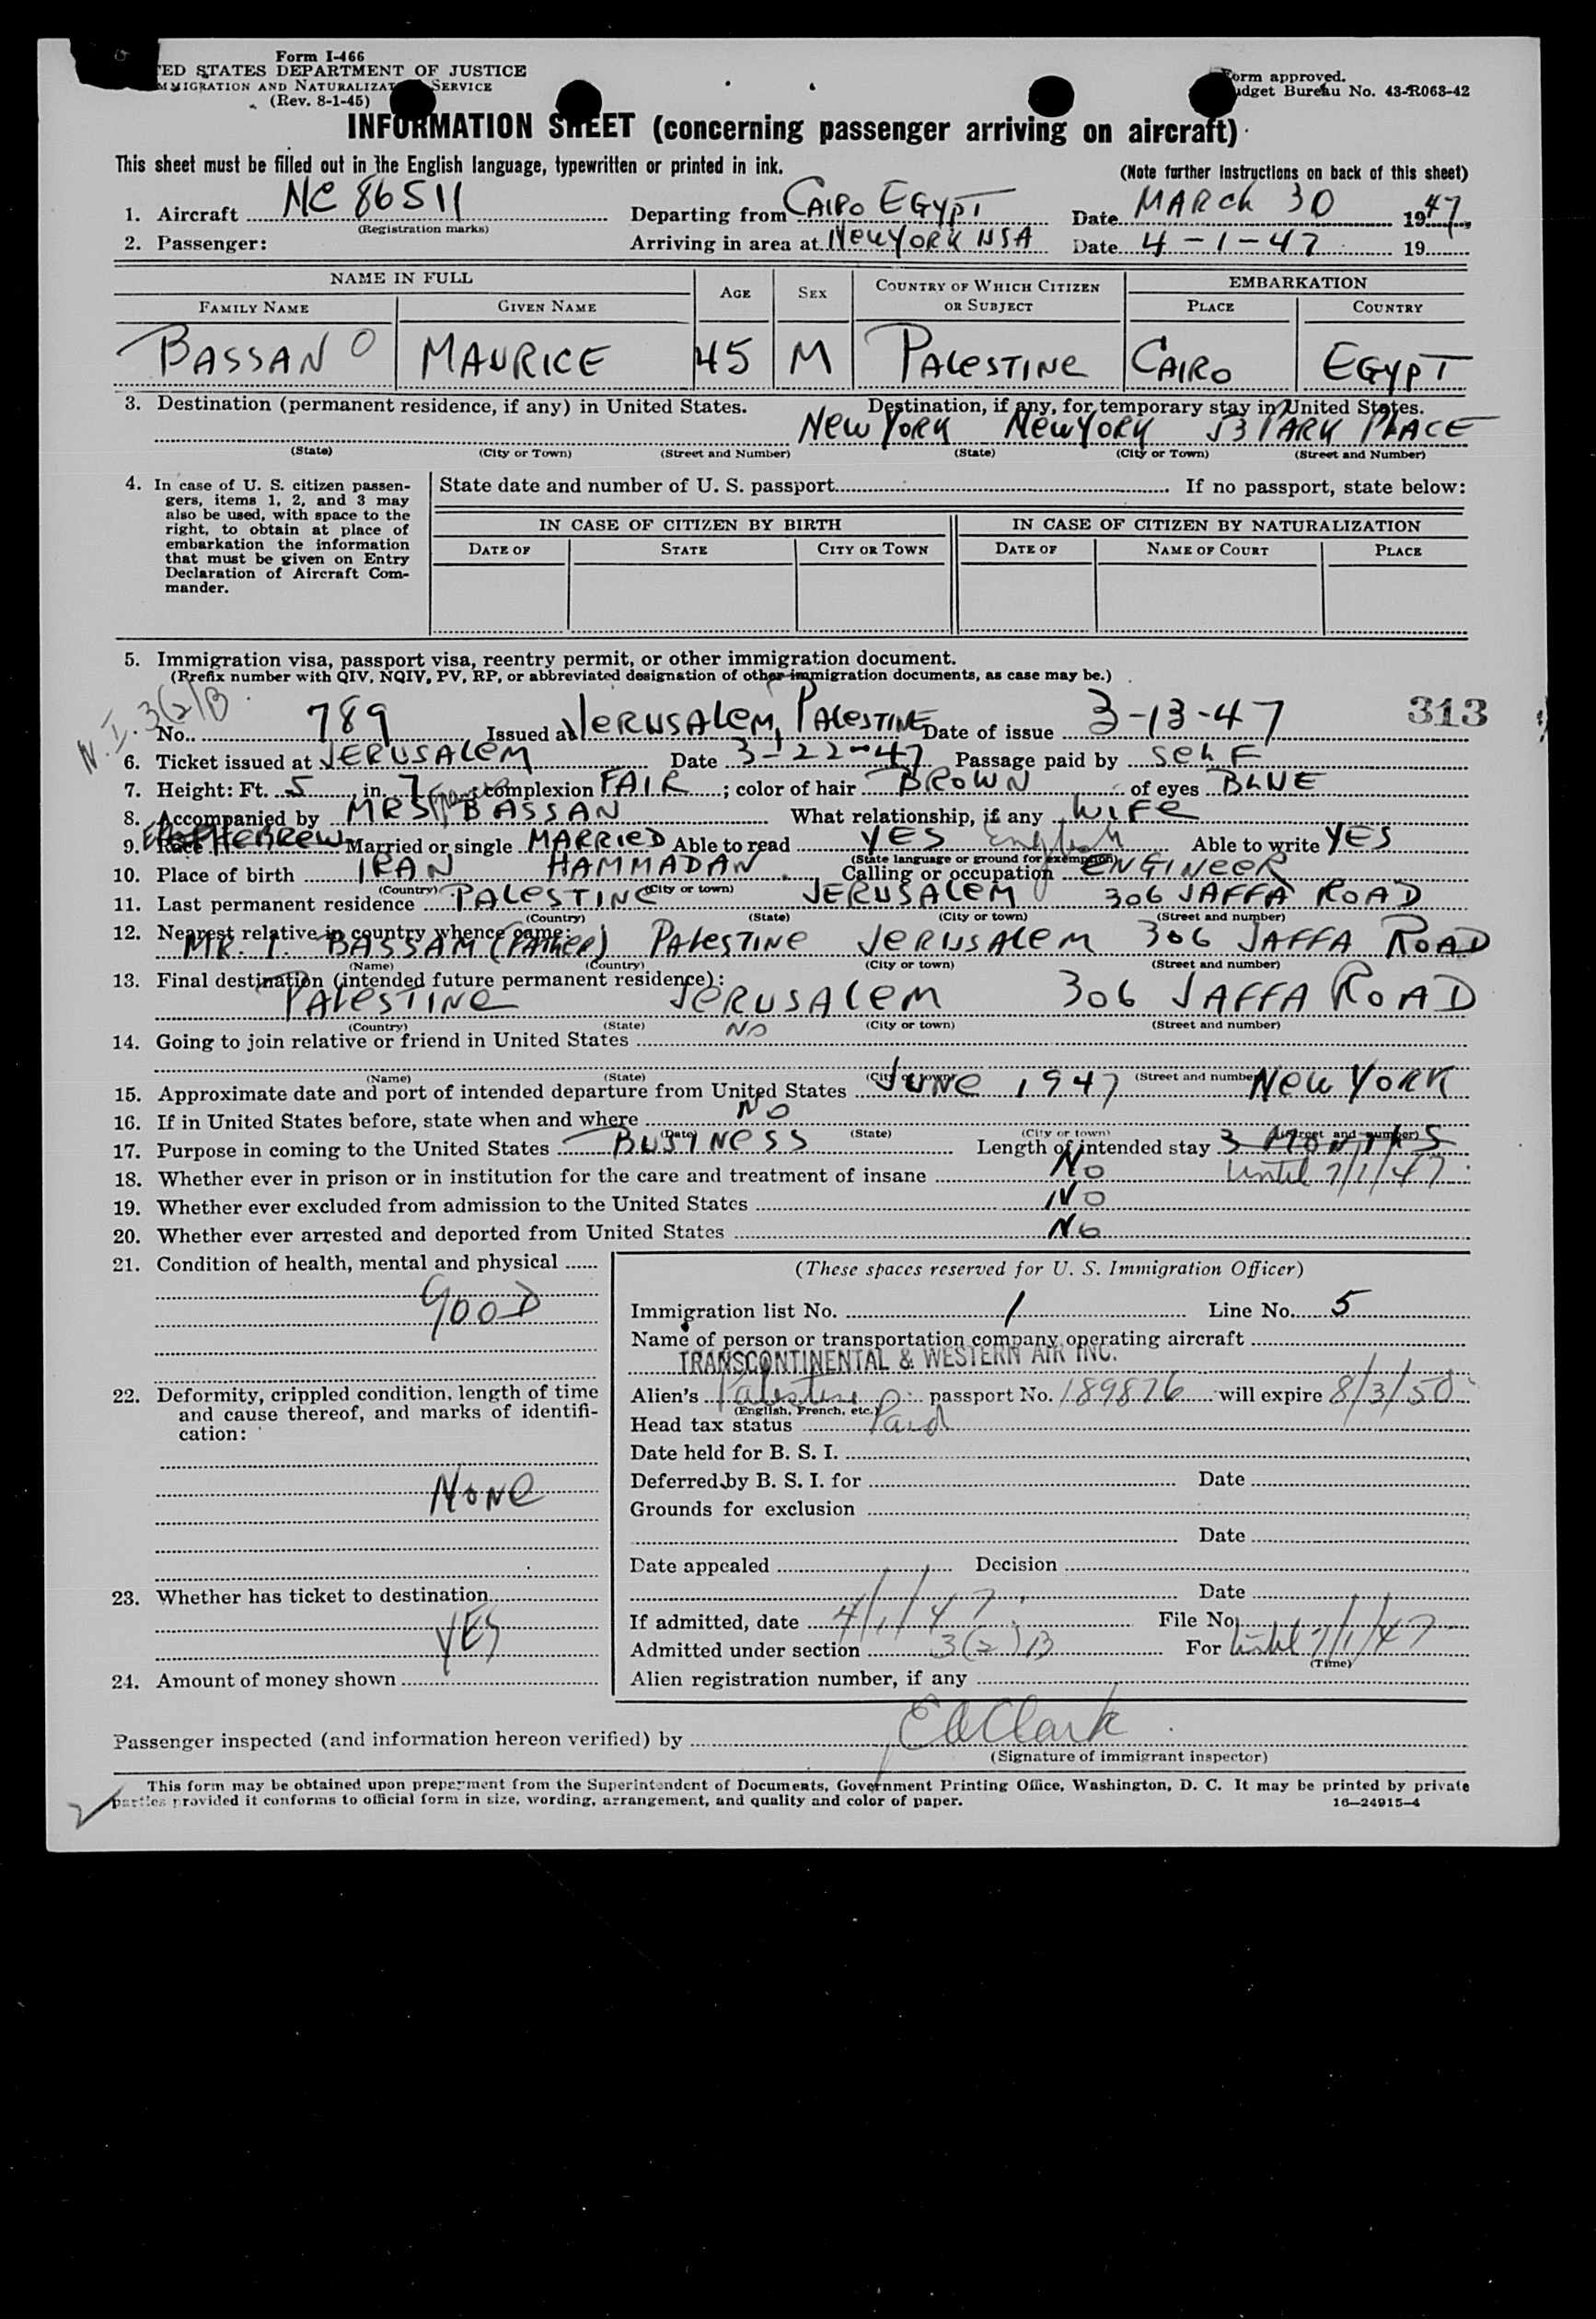 Form I-466
TED STATES DEPARTMENT OF JUSTICE
MMIGRATION AND NATURALIZAT SERVICE
(Rev. 8-1-45)
orm approved.
udget Bureau No. 43-R063-42
INFORMATION SHEET (concerning passenger arriving on aircraft)
This sheet must be filled out in the English language, typewritten or printed in ink.
(Note further instructions on back of this sheet)
1. Aircraft NC 86511 Departing from CAIRO EGYPT Date MARCH 30 1947
(Registration marks)
2. Passenger: Arriving in area at NEW YORK USA Date 4-1-47 19
NAME IN FULL AGE SEX COUNTRY OF WHICH CITIZEN OR SUBJECT EMBARKATION
FAMILY NAME GIVEN NAME PLACE COUNTRY
BASSAN MAURICE 45 M PALESTINE CAIRO EGYPT
3. Destination (permanent residence, if any) in United States. Destination, if any, for temporary stay in United States.
NEW YORK NEW YORK 53 PARK PLACE
(State) (City or Town) (Street and Number) (State) (City or Town) (Street and Number)
4. In case of U. S. citizen passen-
gers, items 1, 2, and 3 may
also be used, with space to the
right, to obtain at place of
embarkation the information
that must be given on Entry
Declaration of Aircraft Com-
mander.
State date and number of U. S. passport If no passport, state below:
IN CASE OF CITIZEN BY BIRTH IN CASE OF CITIZEN BY NATURALIZATION
DATE OF STATE CITY OR TOWN DATE OF NAME OF COURT PLACE
5. Immigration visa, passport visa, reentry permit, or other immigration document.
(Prefix number with QIV, NQIV, PV, RP, or abbreviated designation of other immigration documents, as case may be.)
N.I. 3(2)B
313
No. 789 Issued at JERUSALEM, PALESTINE Date of issue 3-13-47
6. Ticket issued at JERUSALEM Date 3-22-47 Passage paid by SELF
7. Height: Ft. 5 in. 7 complexion FAIR; color of hair BROWN of eyes BLUE
8. Accompanied by MRS BASSAN What relationship, if any WIFE
9. Race HEBREW Married or single MARRIED Able to read YES English Able to write YES
(State language or ground for exemption)
10. Place of birth IRAN HAMMADAN Calling or occupation ENGINEER
(Country) (City or town)
11. Last permanent residence PALESTINE JERUSALEM 306 JAFFA ROAD
(Country) (State) (City or town) (Street and number)
12. Nearest relative in country whence came:
MR. I. BASSAM (FATHER) PALESTINE JERUSALEM 306 JAFFA ROAD
(Name) (Country) (City or town) (Street and number)
13. Final destination (intended future permanent residence):
PALESTINE JERUSALEM 306 JAFFA ROAD
(Country) (State) (City or town) (Street and number)
14. Going to join relative or friend in United States NO
(Name) (State) (City or town) (Street and number)
15. Approximate date and port of intended departure from United States JUNE 1947 NEW YORK
16. If in United States before, state when and where NO
(Date) (State) (City or town) (Street and number)
17. Purpose in coming to the United States BUSINESS Length of intended stay 3 MONTHS
Until 7/1/47
18. Whether ever in prison or in institution for the care and treatment of insane NO
19. Whether ever excluded from admission to the United States NO
20. Whether ever arrested and deported from United States NO
21. Condition of health, mental and physical
GOOD
22. Deformity, crippled condition, length of time
and cause thereof, and marks of identifi-
cation:
NONE
23. Whether has ticket to destination
YES
24. Amount of money shown
(These spaces reserved for U. S. Immigration Officer)
Immigration list No. 1 Line No. 5
Name of person or transportation company operating aircraft
TRANSCONTINENTAL & WESTERN AIR INC.
Alien's Palestine passport No. 189876 will expire 8/3/50
(English, French, etc.)
Head tax status Paid
Date held for B. S. I.
Deferred by B. S. I. for Date
Grounds for exclusion
Date
Date appealed Decision
Date
If admitted, date 4/1/47 File No.
Admitted under section 3(2)B For Until 7/1/47
(Time)
Alien registration number, if any
Passenger inspected (and information hereon verified) by E A Clark
(Signature of immigrant inspector)
This form may be obtained upon prepayment from the Superintendent of Documents, Government Printing Office, Washington, D. C. It may be printed by private
parties provided it conforms to official form in size, wording, arrangement, and quality and color of paper.
16—24915-4